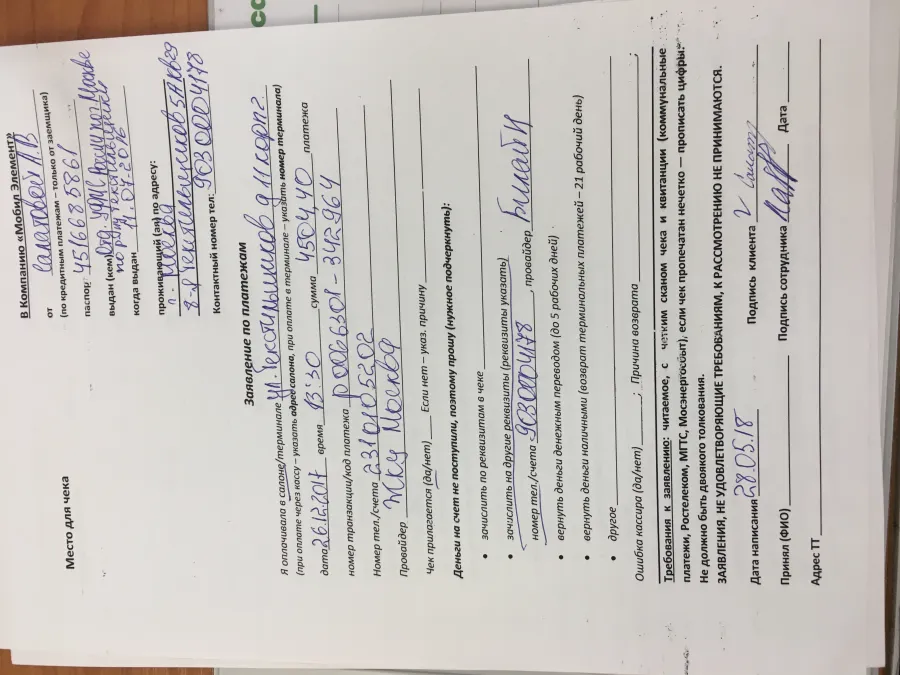 СС
Место для чека
В Компанию «Мобил Элемент»
от Салатовой А В
(по кредитным платежам – только от заемщика)
паспорт 4516683861
выдан (кем) Отд. УФМС России по г. Москве
по р-ну Текстильщики
когда выдан 11.07.2016
проживающий (ая) по адресу:
г. Москва
8-я Текстильщиков 5А кв29
Контактный номер тел: 9030004178
Заявление по платежам
Я оплачивал/а в салоне/терминале ул. Текстильщиков д 11 корп 2
(при оплате через кассу – указать адрес салона, при оплате в терминале – указать номер терминала)
дата 26.12.2017 время 13:30 сумма 4504,40 платежа
номер транзакции/код платежа Р0066301-342964
Номер тел./счета 2310105202
Провайдер ЖКУ Москва
Чек прилагается (да/нет) Если нет – указ. причину
Деньги на счет не поступили, поэтому прошу (нужное подчеркнуть):
• зачислить по реквизитам в чеке
• зачислить на другие реквизиты (реквизиты указать)
номер тел./счета 9030004178, провайдер Билайн
• вернуть деньги денежным переводом (до 5 рабочих дней)
• вернуть деньги наличными (возврат терминальных платежей – 21 рабочий день)
• другое
Ошибка кассира (да/нет) ; Причина возврата ;
Требования к заявлению: читаемое, с четким сканом чека и квитанции (коммунальные
платежи, Ростелеком, МГТС, Мосэнергосбыт), если чек пропечатан нечетко — прописать цифры.
Не должно быть двоякого толкования.
ЗАЯВЛЕНИЯ, НЕ УДОВЛЕТВОРЯЮЩИЕ ТРЕБОВАНИЯМ, К РАССМОТРЕНИЮ НЕ ПРИНИМАЮТСЯ.
Дата написания 28.05.18 Подпись клиента
Принял (ФИО) Подпись сотрудника Дата
Адрес ТТ